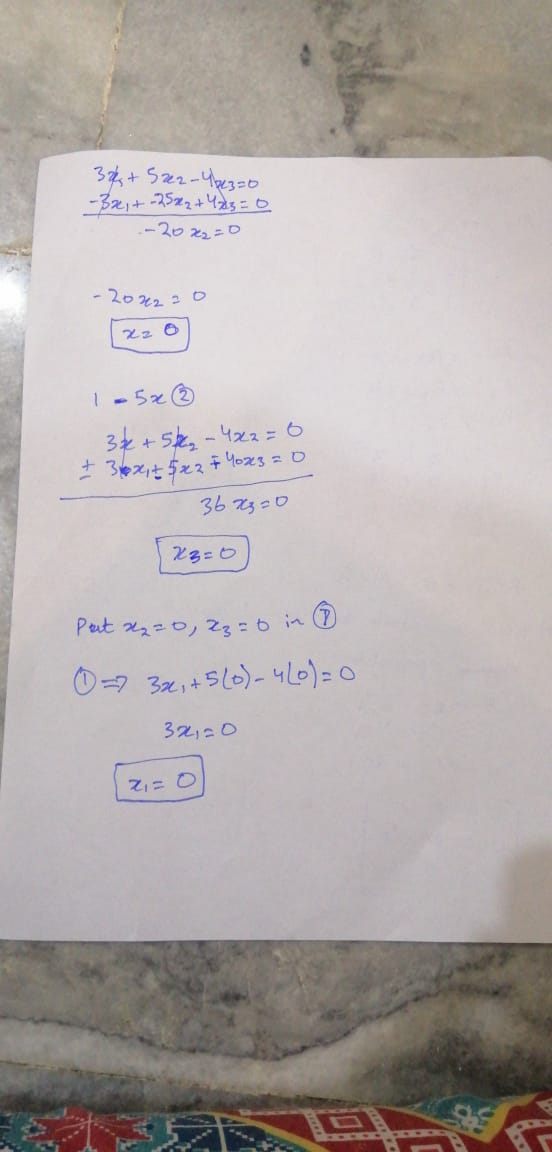 3x₁ + 5x₂ - 4x₃ = 0
-3x₁ + -25x₂ + 4x₃ = 0
-20 x₂ = 0
-20x₂ = 0
x = 0
1 - 5x ②
3x + 5x₂ - 4x₂ = 0
± 3x₁ ± 5x₂ ∓ 40x₃ = 0
36 x₃ = 0
x₃ = 0
Put x₂ = 0, x₃ = 0 in ①
① ⇒ 3x₁ + 5(0) - 4(0) = 0
3x₁ = 0
x₁ = 0